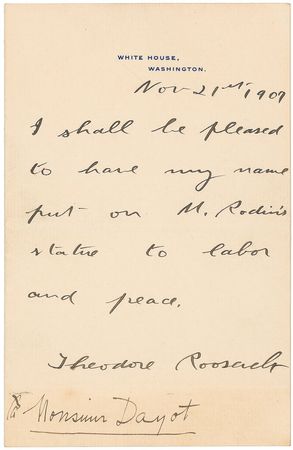 WHITE HOUSE,
WASHINGTON.
Nov 21st 1907
I shall be pleased
to have my name
put on M. Rodin's
statue to labor
and peace.
Theodore Roosevelt
Monsieur Dayot